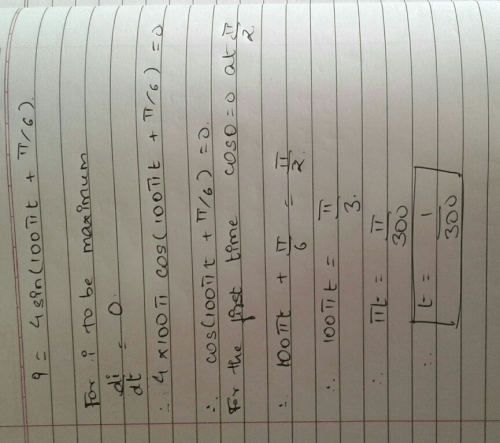 9 = 4 sin(100πt + π/6).
For i to be maximum
di/dt = 0.
∴ 4 × 100π cos(100πt + π/6) = 0
∴ cos(100πt + π/6) = 0.
For the first time cosθ = 0 at π/2.
∴ 100πt + π/6 = π/2
∴ 100πt = π/3.
∴ πt = π/300
∴ t = 1/300